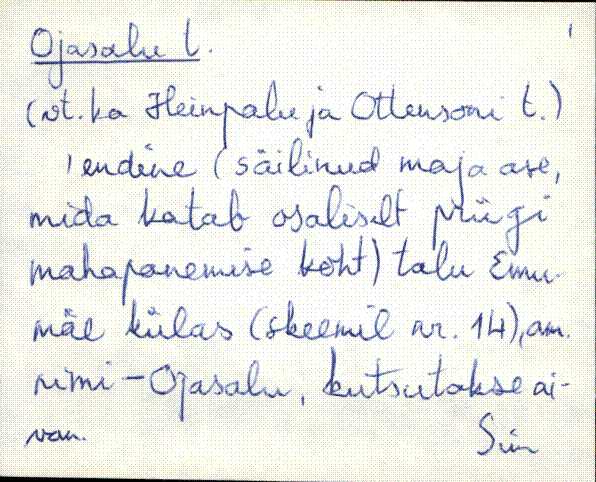 Ojasalu t. 1
(vt. ka Heinpalu ja Ottensoni t.)
1 endine (säilinud maja ase,
mida katab osaliselt prügi
mahapanemise koht) talu Emu-
mäe külas (skeemil nr. 14), am.
nimi - Ojasalu, kutsutakse ai-
van.
Siin